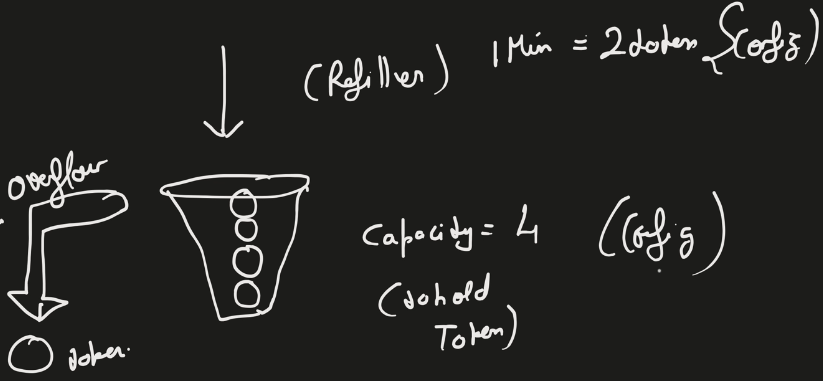 (Refiller) 1 Min = 2 token {Config)
overflow
Capacity = 4 (Config)
(to hold
Token)
token.